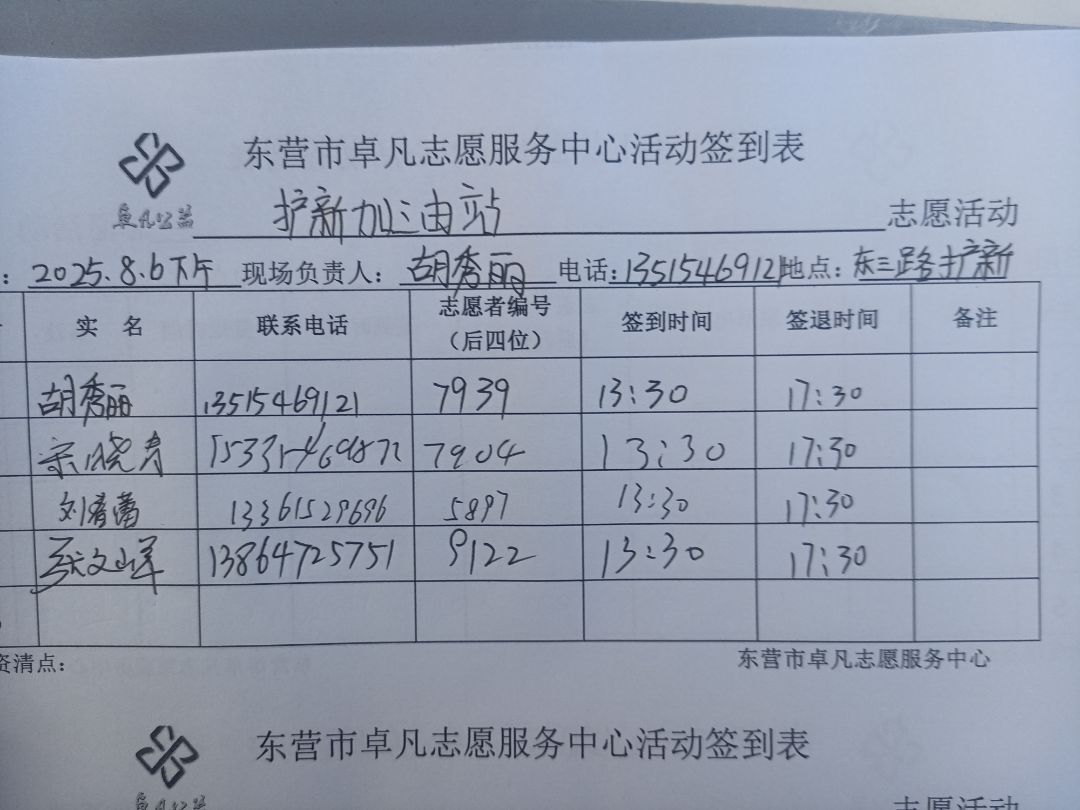 东营市卓凡志愿服务中心活动签到表
卓凡公益
护新加三由站 志愿活动
: 2025.8.6下午 现场负责人: 胡秀丽 电话: 13515469121 地点: 东三路护新
实 名 联系电话 志愿者编号(后四位) 签到时间 签退时间 备注
胡秀丽 13515469121 7939 13:30 17:30
宋晓青 7904 13:30 17:30
刘 13361529696 5897 13:30 17:30
13864725751 9122 13:30 17:30
资清点:
东营市卓凡志愿服务中心
东营市卓凡志愿服务中心活动签到表
卓凡公益
志愿活动